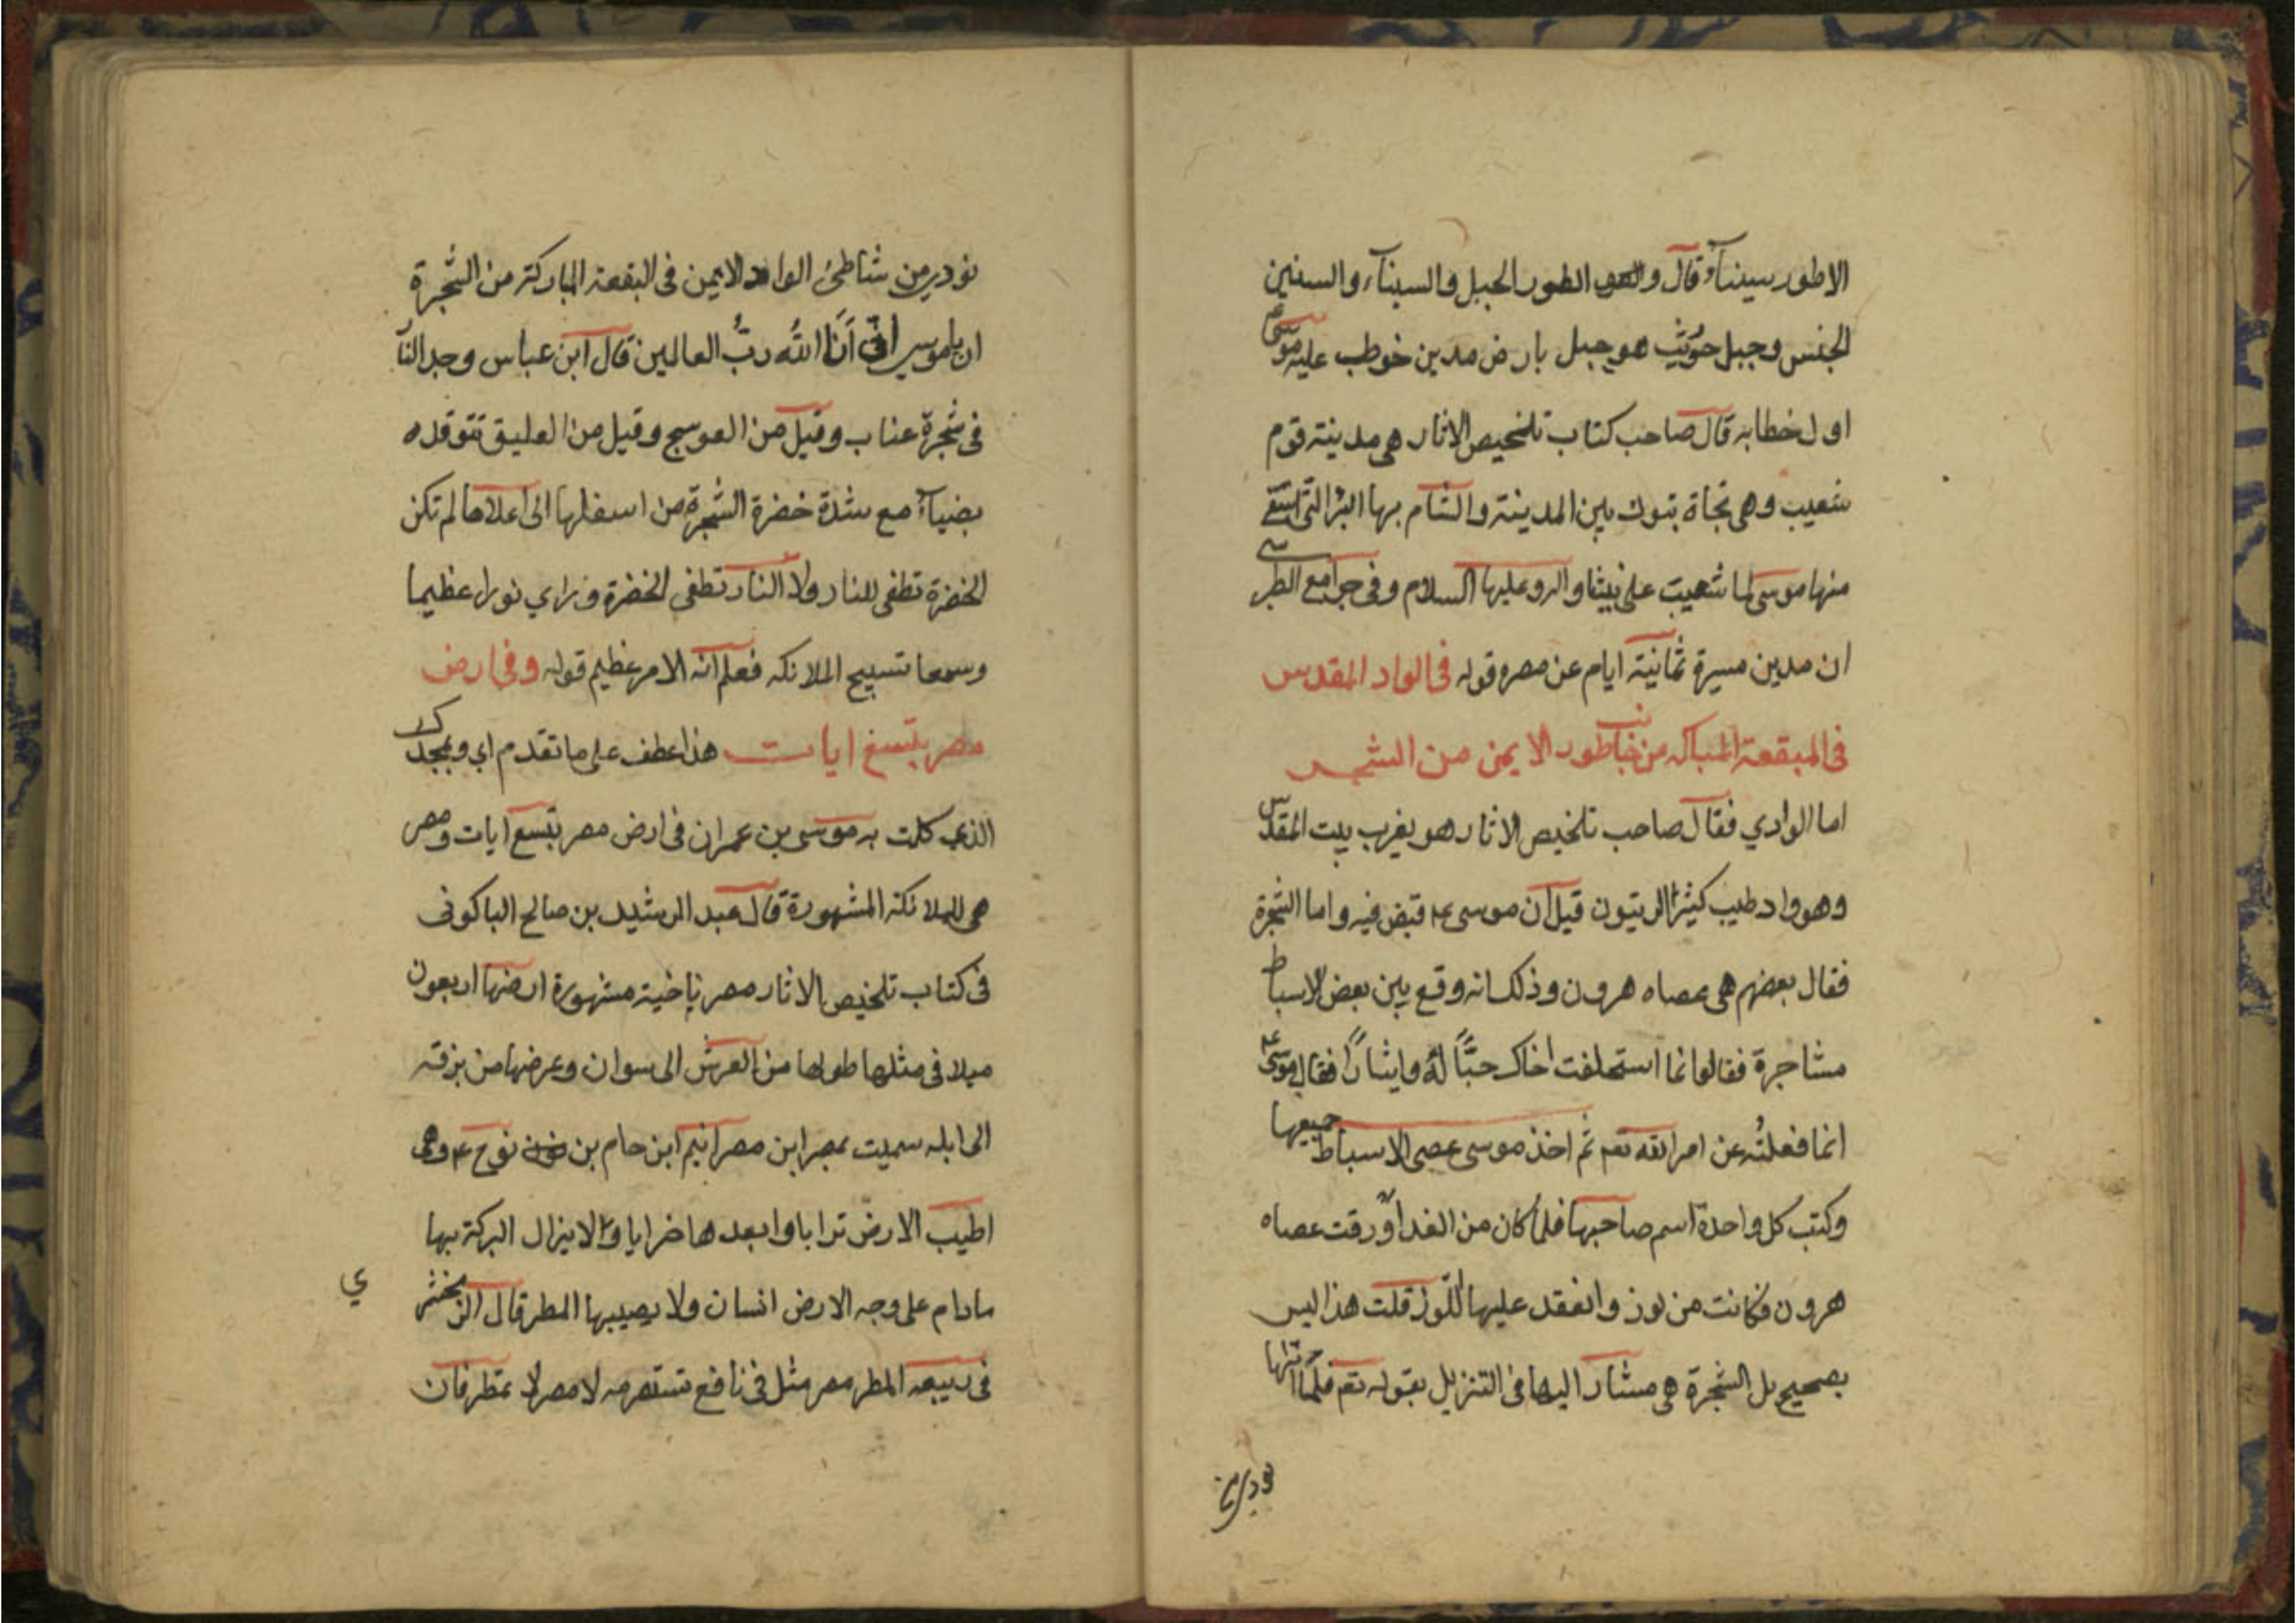 الا طور سيناء قال و الطور الجبل والسيناء والسنين
الجنس وجبل حوريث هو جبل بارض مدين خوطب عليه موسى ع
اول خطابه قال صاحب كتاب تلخيص الاثار هى مدينة قوم
شعيب وهى تجاة تبوك بين المدينة والشام بها البئر التى استقى
منها موسى لما شعيب على نبينا واله وعليها السلام وفى جوامع الطبرسى
ان مدين مسيرة ثمانية ايام عن مصر وقوله فى الواد المقدس
فى البقعة المباركه من جانب طور الايمن من الشجر
اما الوادي فقال صاحب تلخيص الاثار هو بغرب بيت المقدس
وهو واد طيب كثير الزيتون قيل ان موسى ع قبض فيه واما الشجرة
فقال بعضهم هى عصاه هرون وذلك انه وقع بين بعض الاسباط
مشاجرة فقالوا انما استخلفت اخاك حبًّا له وايثارًا فقال موسى ع
انما فعلتُه عن امر الله تعم ثم اخذ موسى عصى الاسباط جميعها
وكتب كل واحدة اسم صاحبها فلما كان من الغد اورقت عصاه
هرون فكانت من لوز وانعقد عليها اللّوز قلت هذا ليس
بصحيح بل الشجرة هى مشار اليها فى التنزيل بقوله تعم فلمّا اتٰها
نودي من
نودي من شاطئ الواد الايمن فى البقعة المباركة من الشجرة
ان ياموسي انّى اَنَا اللّه ربُّ العالمين قال ابن عباس وجد النار
فى شجرة عناب وقيل من العوسج وقيل من العليق تتوقده
بضياءٍ مع شدة خضرة الشجرة من اسفلها الى اعلاها لم تكن
الخضرة تطفى للنار ولا النار تطفى الخضرة وراي نورا عظيما
وسمعا تسبيح الملائكه فعلم انه الامر عظيم قوله وفى ارض
مصر بتسع ايات هذا عطف على ما تقدم اي وبمجدك
الذي كلمت به موسى بن عمران فى ارض مصر بتسع ايات ومصر
هى للملائكة المشهورة قال عبد الرشيد بن صالح الباكونى
فى كتاب تلخيص الاثار مصر ناحية مشهورة ارضها اربعون
ميلا فى مثلها طولها من العرش الى سوان وعرضها من برقه
الى ايله سميت بمصر ابن مصرانيم ابن حام بن نوح ع وهى
اطيب الارض ترابا وابعدها خرابا ولا يزال البركة بها
مادام على وجه الارض انسان ولا يصيبها المطر قال الزمخشري
فى ربيعه المطر مصر مثل فى نافع تستضر مه لا مصر لا تمطر فان